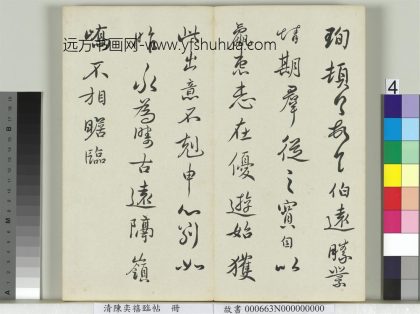 远方书画网-www.yfshuhua.com
珣頓首頓首伯遠勝業
情期群從之寶自以
羸患志在優遊始獲
此出意不剋申分別如
昨永為疇古遠隔嶺
嶠不相瞻臨
4
清陳奕禧臨帖 冊
故書 000663N000000000